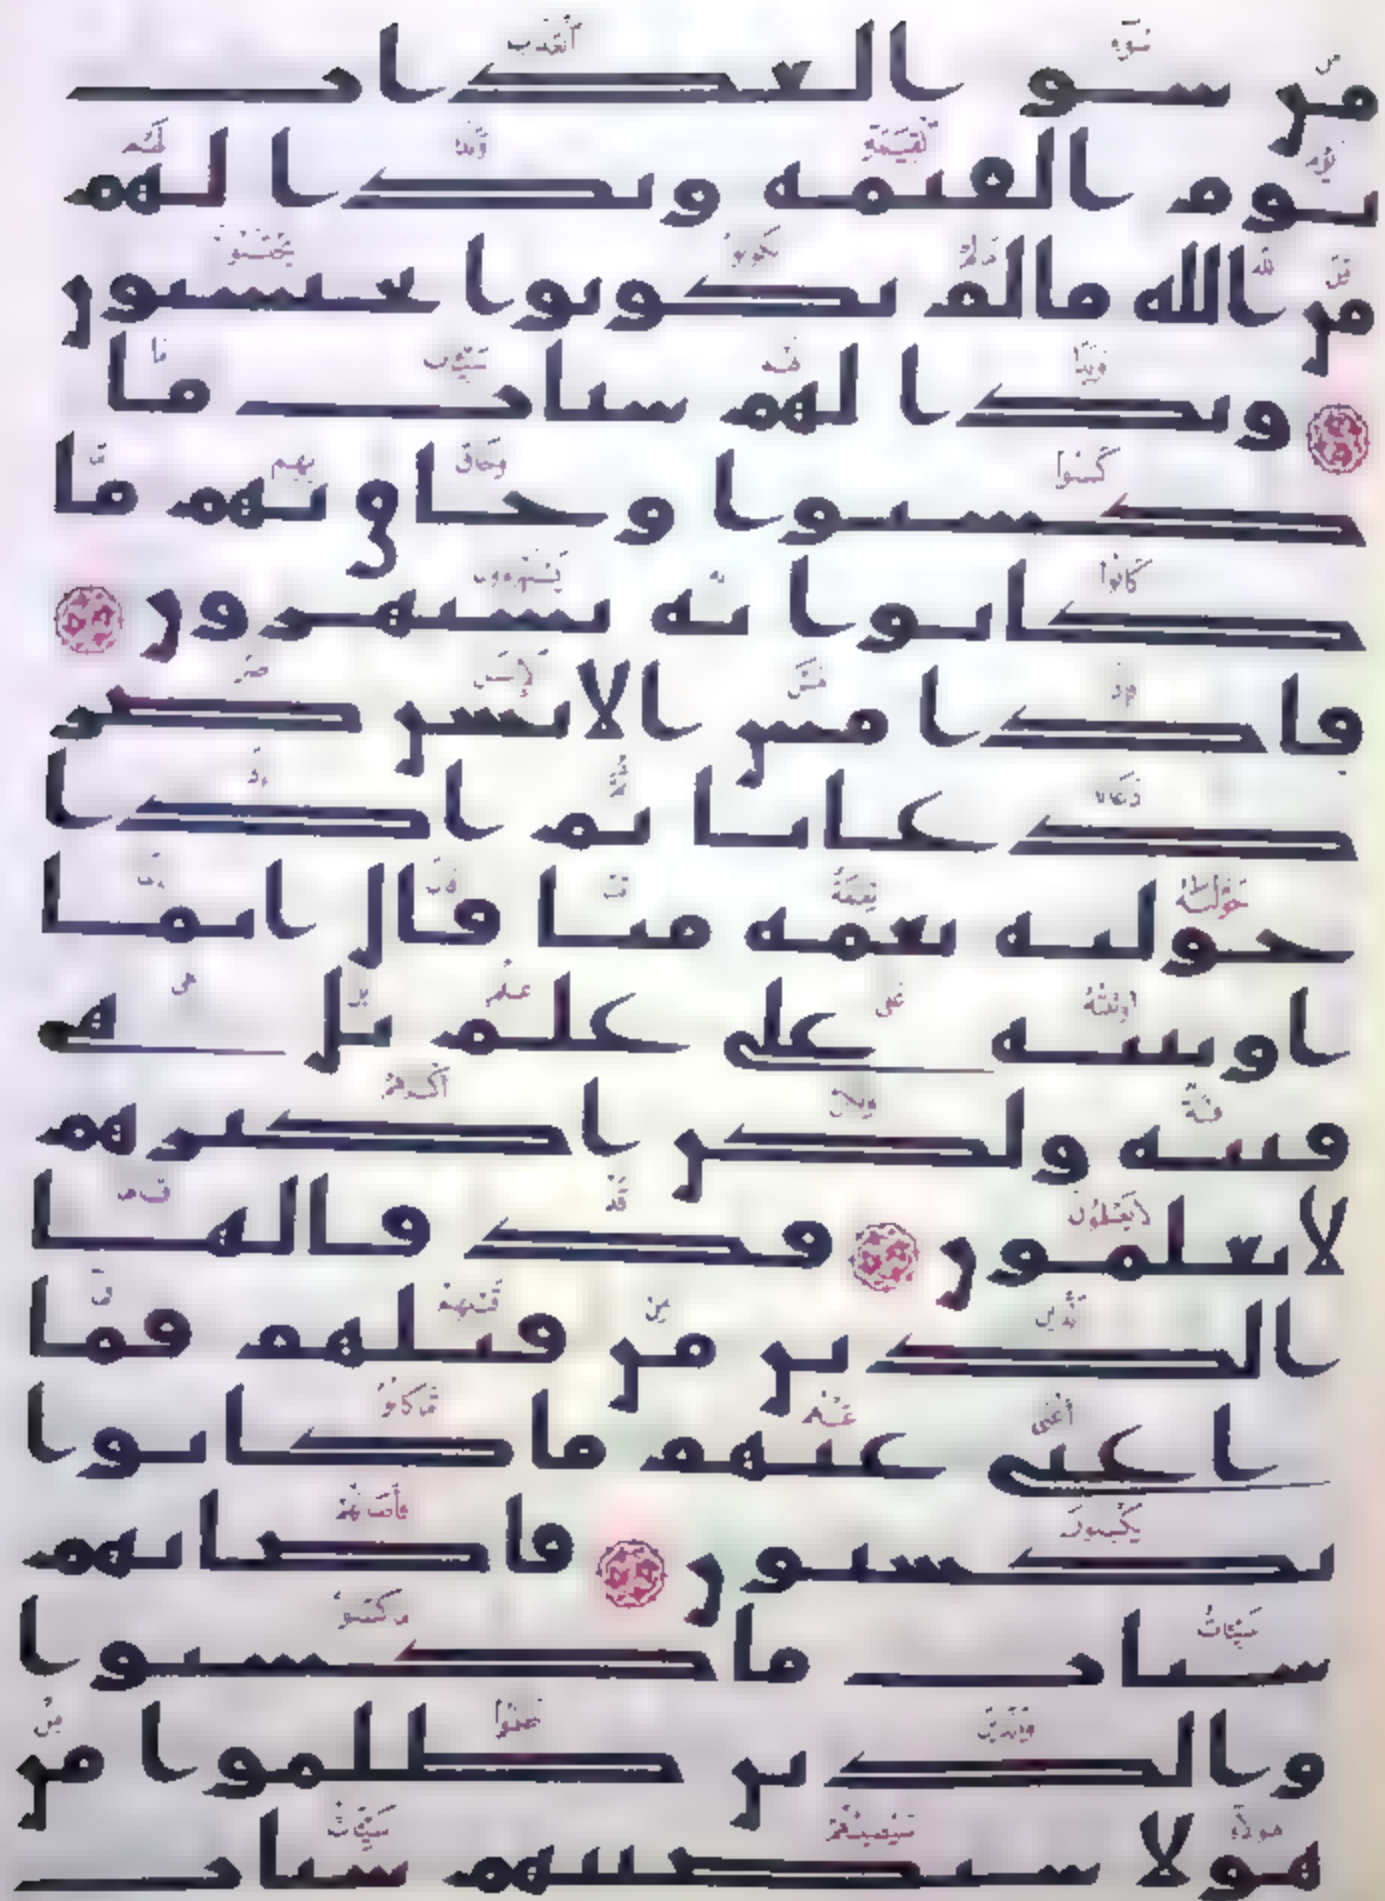 من سو العذاب
يوم القيمة وبدا لهم
من الله مالم يكونوا يحتسبون
وبدا لهم سيات ما
كسبوا وحاق بهم ما
كانوا به يستهزون
فاذا مس الانسن ضر
دعانا ثم اذا
خولنه نعمة منا قال انما
اوتيته على علم بل هي
فتنة ولكن اكثرهم
لا يعلمون قد قالها
الذين من قبلهم فما
اغنى عنهم ما كانوا
يكسبون فاصابهم
سيات ما كسبوا
والذين ظلموا من
هولا سيصيبهم سيات